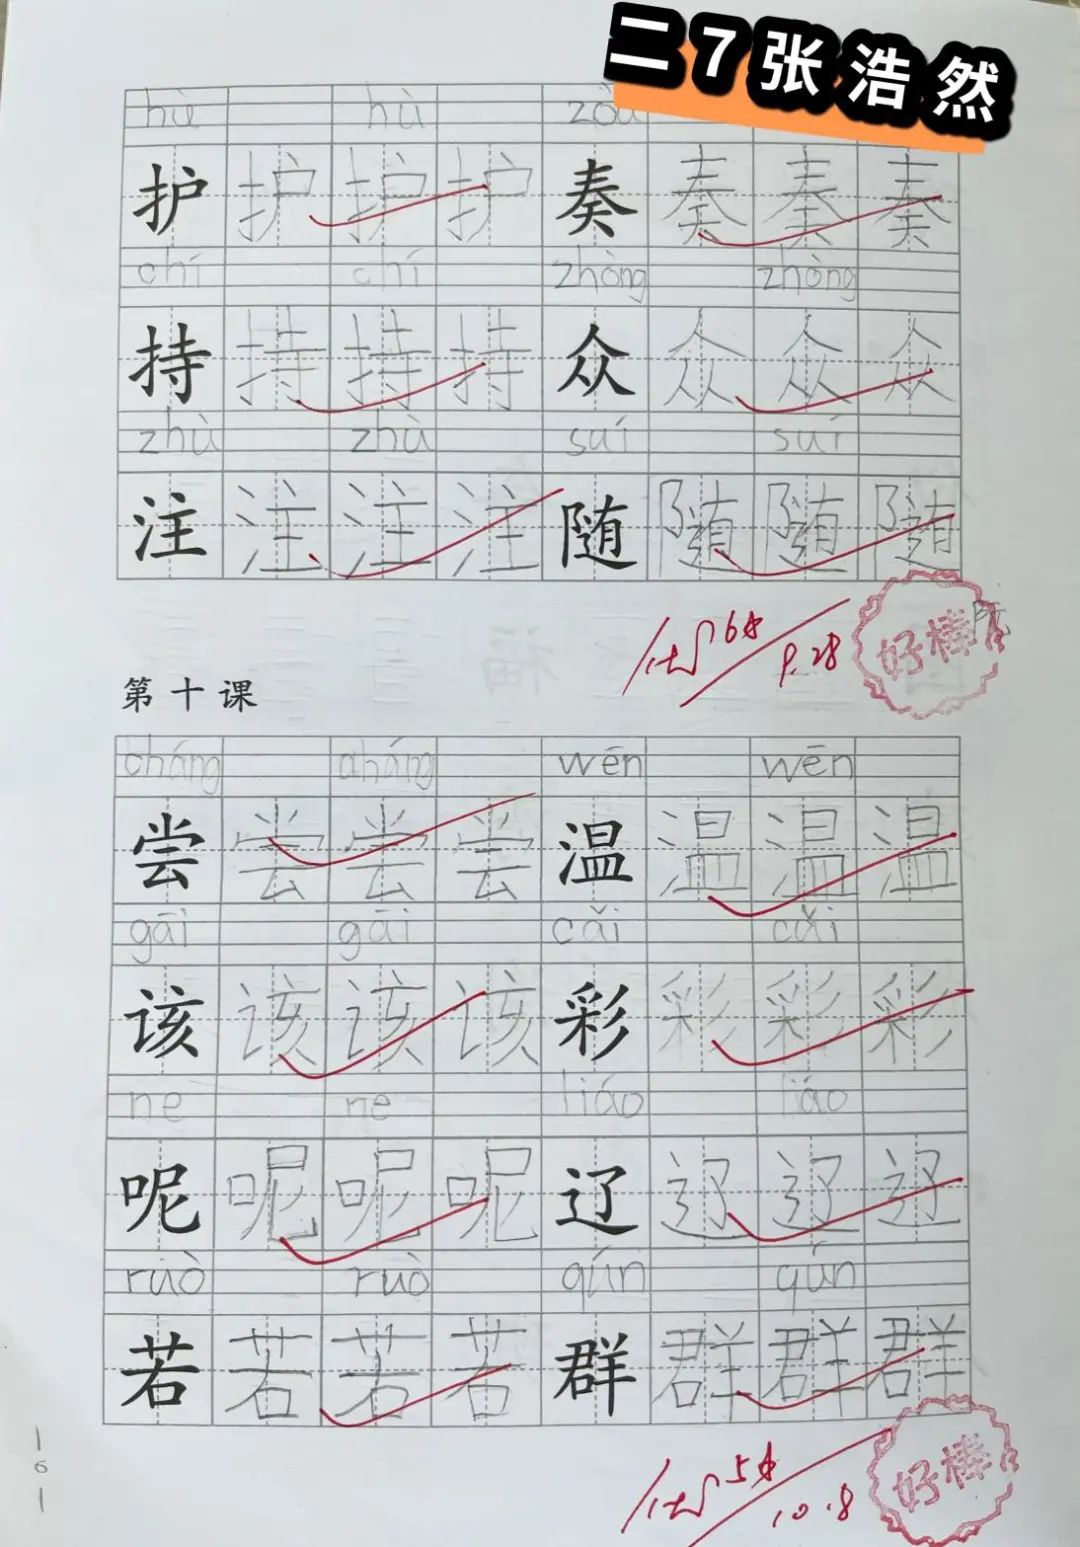 二7张浩然
hù hù zòu
护 护 护 护 奏 奏 奏 奏
chí chí zhòng zhòng
持 持 持 持 众 众 众 众
zhù zhù suí suí
注 注 注 注 随 随 随 随
优 6
9.28
好棒
第十课
cháng cháng wēn wēn
尝 尝 尝 尝 温 温 温 温
gāi gāi cǎi cǎi
该 该 该 该 彩 彩 彩 彩
ne ne liáo liáo
呢 呢 呢 呢 辽 辽 辽 辽
ruò ruò qún qún
若 若 若 若 群 群 群 群
优 5
10.8
好棒
16